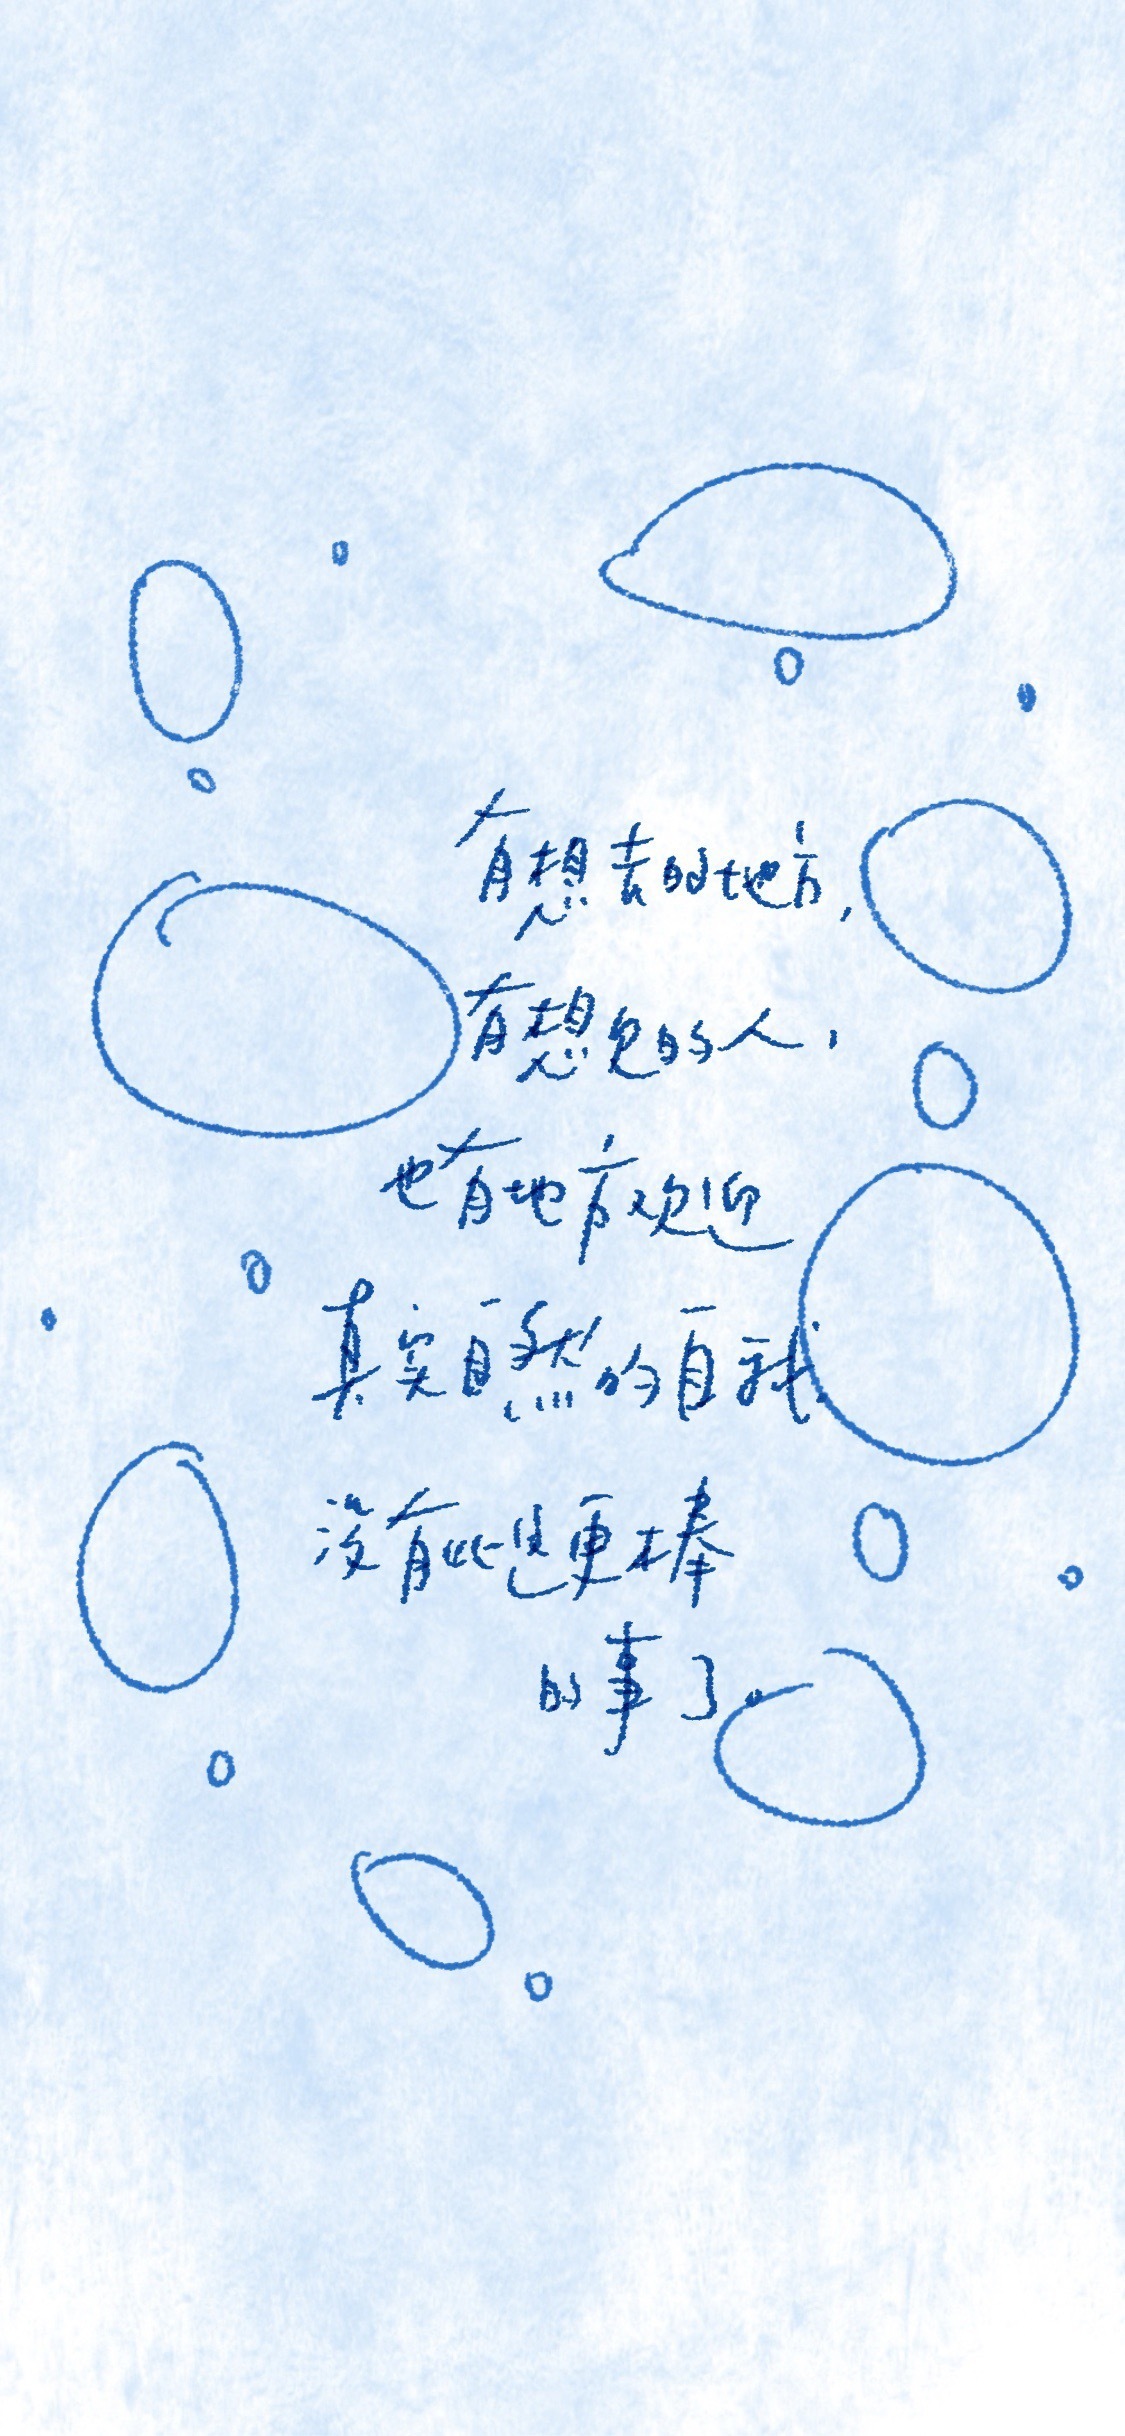 有想去的地方，
有想见的人，
也有地方欢迎
真实自然的自我.
没有比这更棒
的事了。